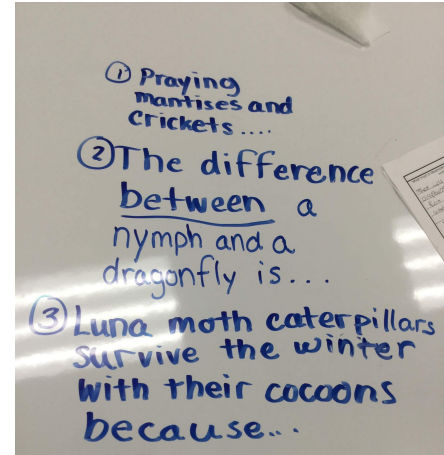 ① Praying
mantises and
crickets....
② The difference
between a
nymph and a
dragonfly is...
③ Luna moth caterpillars
survive the winter
with their cocoons
because...